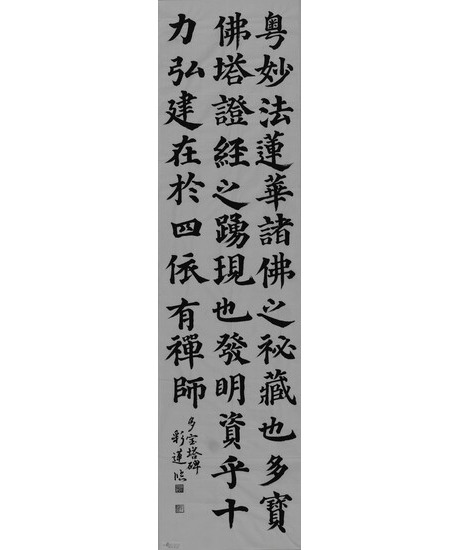 粵妙法蓮華諸佛之祕藏也多寶
佛塔證經之踴現也發明資乎十
力弘建在於四依有禪師
多寶塔碑
彩蓮臨